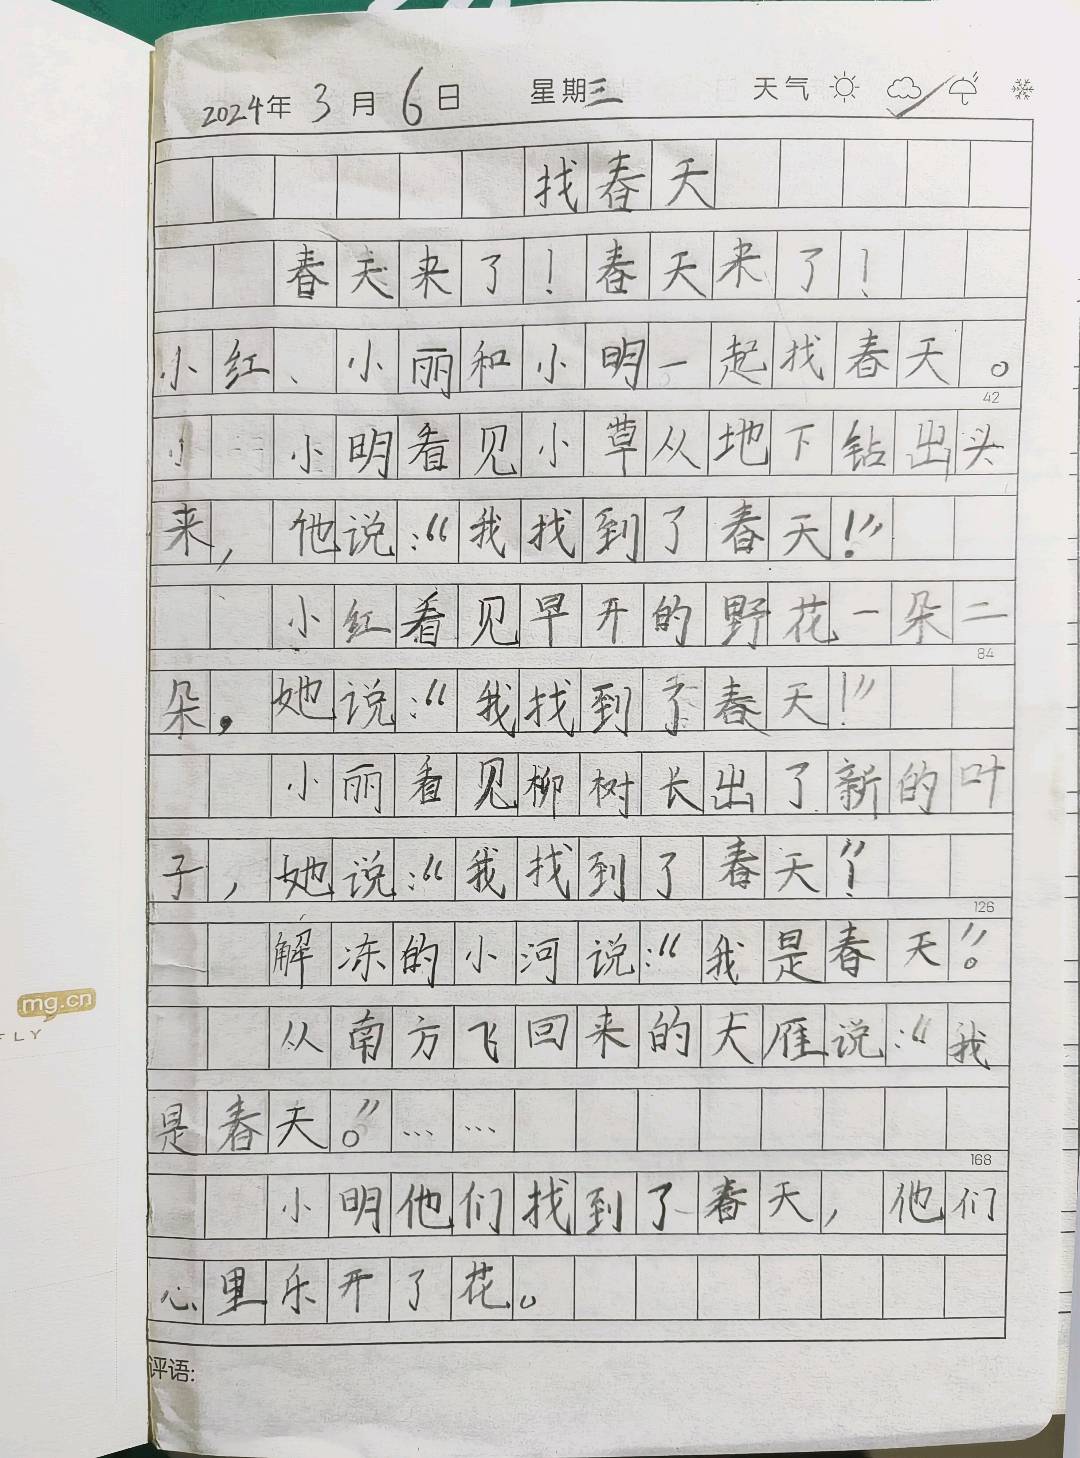 2024年 3月 6日 星期三 天气
找春天
春天来了！春天来了！
小红、小丽和小明一起找春天。
42
小明看见小草从地下钻出头
来，他说：“我找到了春天！”
小红看见早开的野花一朵二
84
朵，她说：“我找到了春天！”
小丽看见柳树长出了新的叶
子，她说：“我找到了春天！”
126
解冻的小河说：“我是春天。”
从南方飞回来的大雁说：“我
是春天。”……
168
小明他们找到了春天，他们
心里乐开了花。
评语：
mg.cn
FLY